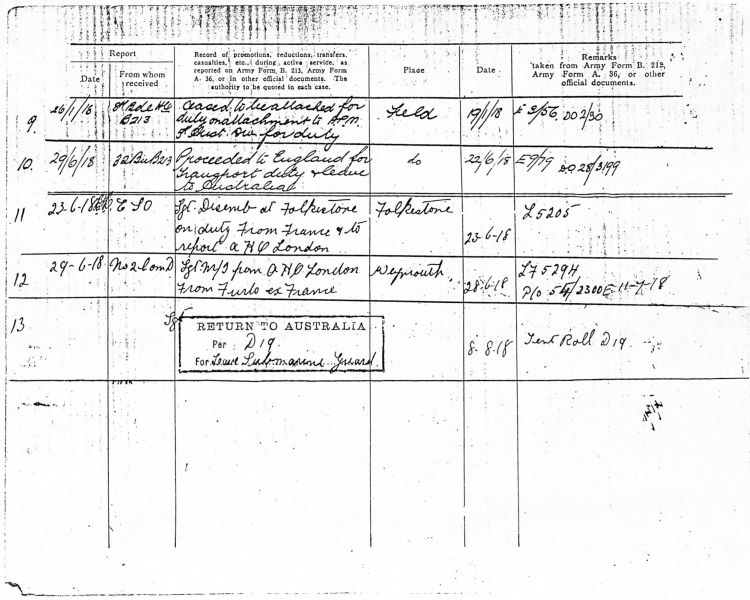 Report
Record of promotions, reductions, transfers,
casualties, etc., during active service, as
reported on Army Form, B. 213, Army Form
A. 36, or in other official documents. The
authority to be quoted in each case.
Place
Date
Remarks
taken from Army Form B. 213,
Army Form A. 36, or other
official documents.
Date
From whom
received
9. 26/1/18
B213
Ceased to be attached for
duty on attachment to A.P.M.
Aust. Div. for duty
Field
19/1/18
E 3/56, DO 2/30
10. 29/6/18
32 Bn B213
Proceeded to England for
transport duty & leave
to Australia
do
22/6/18
E 9/79
11 23-6-18
E S O
Sgt. Disemb at Folkestone
on duty From France & to
report A H Q London
Folkestone
23-6-18
L 5205
12 29-6-18
No 2 Comd
Sgt M/I from A H Q London
From Furlo ex France
Weymouth
28-6-18
L7 529H
P/o 54/2300E 11-7-18
13
Sgt
RETURN TO AUSTRALIA
Per D19
For Leave Submarine Guard
8-8-18
Tent Roll D19